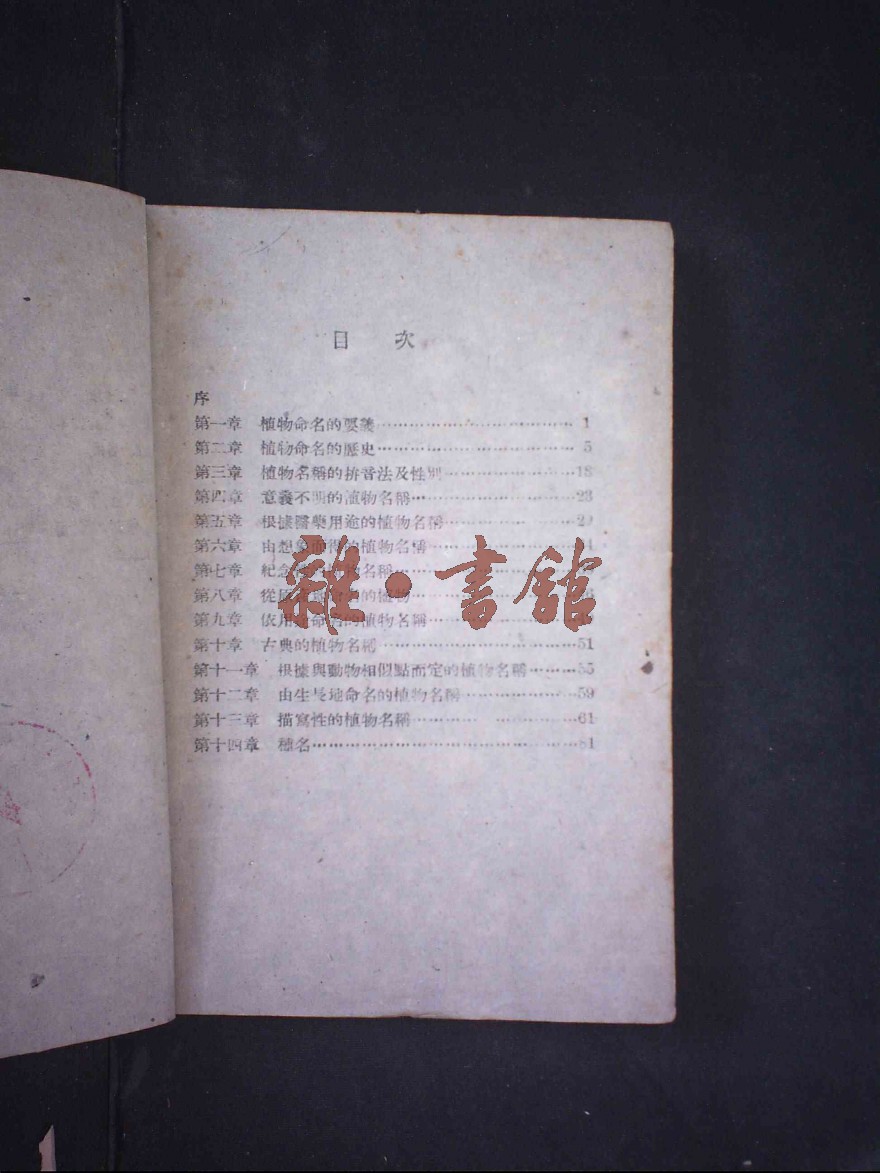 目 次
序
第一章 植物命名的要義 1
第二章 植物命名的歷史 5
第三章 植物名稱的拚音法及性別 18
第四章 意義不明的植物名稱 23
第五章 根據醫藥用途的植物名稱
第六章 由想象而得的植物名稱
第七章 紀念 名稱
第八章 命名的植物
第九章 依用途命名的植物名稱
雜·書館
第十章 古典的植物名稱 51
第十一章 根據與動物相似點而定的植物名稱 55
第十二章 由生長地命名的植物名稱 59
第十三章 描寫性的植物名稱 61
第十四章 種名 81